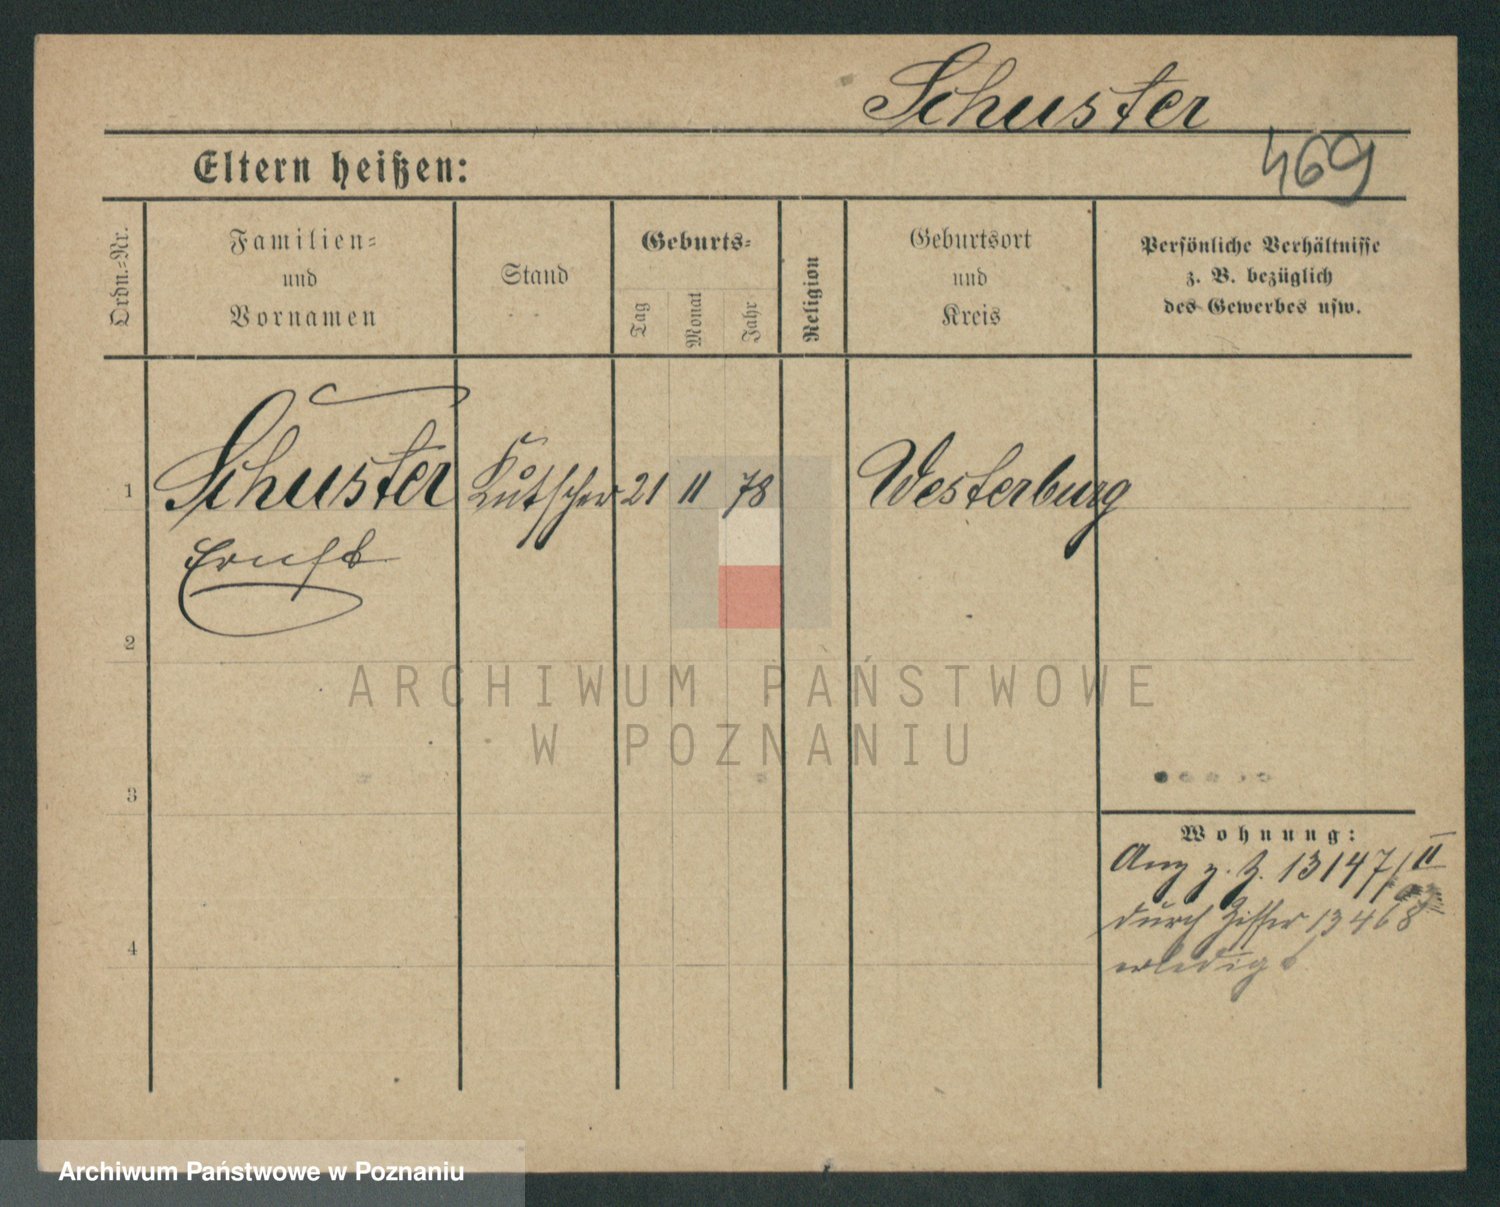 Schuster
469
Eltern heißen:
Ordn.-Nr.
Familien-
und
Vornamen
Stand
Geburts-
Tag
Monat
Jahr
Religion
Geburtsort
und
Kreis
Persönliche Verhältnisse
z. B. bezüglich
des Gewerbes usw.
1 Schuster Kutscher 21 11 78 Westerburg
Ernst
2
ARCHIWUM PAŃSTWOWE
W POZNANIU
3
Wohnung:
Anz z. Z. 13147/II
durch Ziffer 13468
erledigt
4
Archiwum Państwowe w Poznaniu